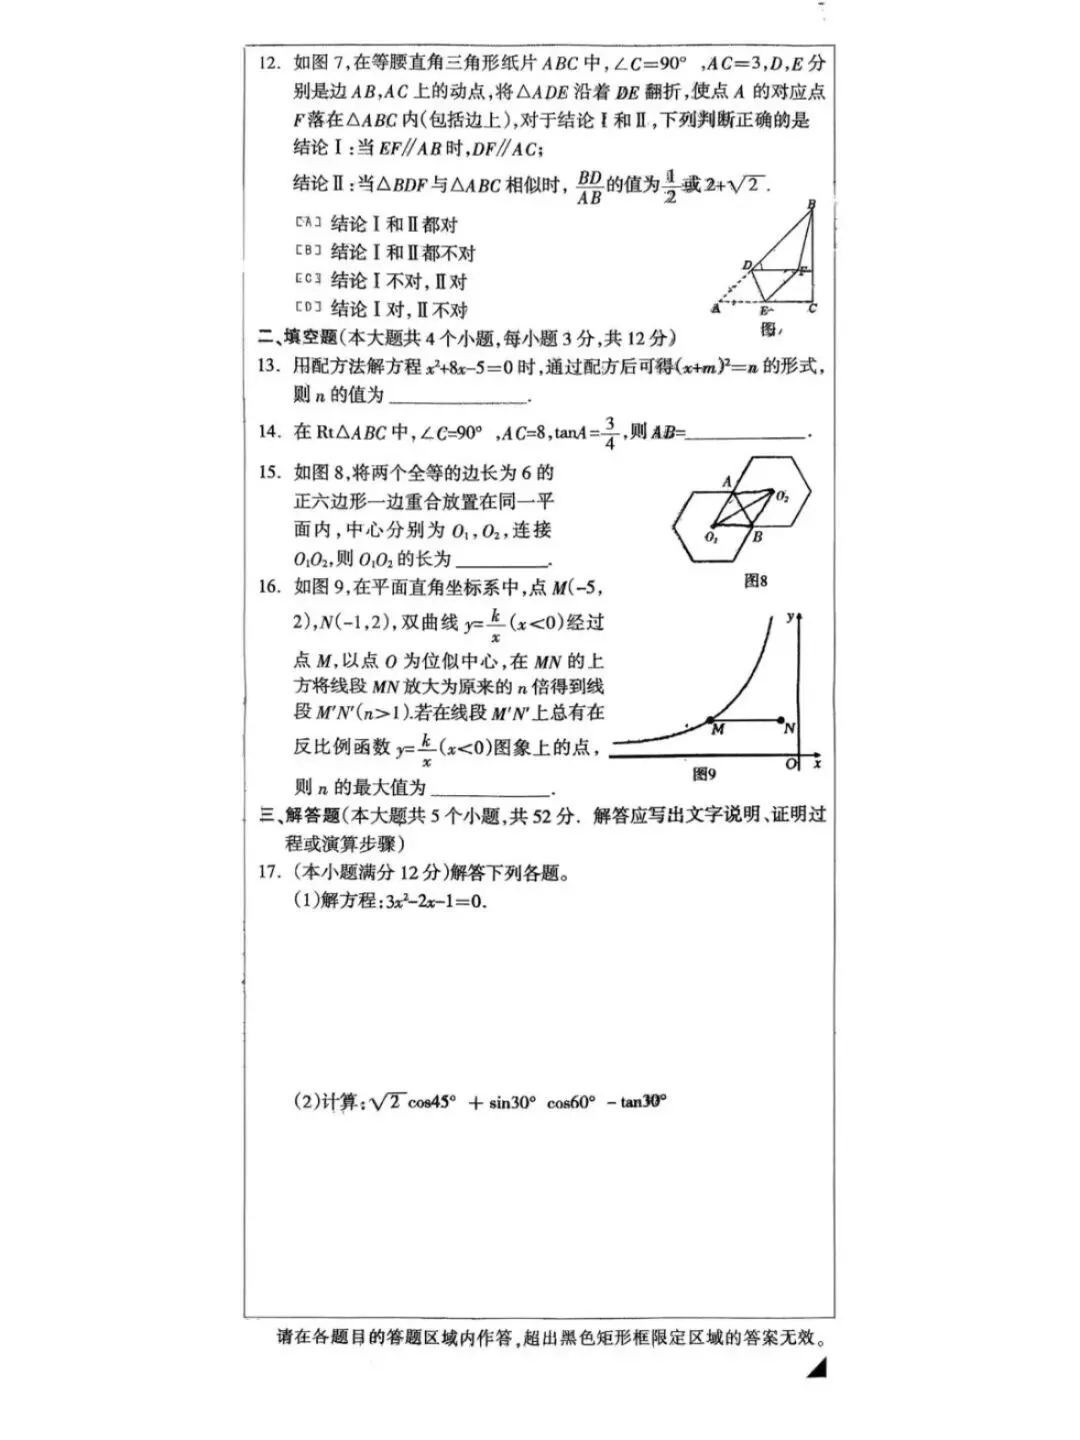 12. 如图 7,在等腰直角三角形纸片 ABC 中,∠C=90° ,AC=3,D,E 分
别是边 AB,AC 上的动点,将△ADE 沿着 DE 翻折,使点 A 的对应点
F 落在△ABC 内(包括边上),对于结论 Ⅰ 和 Ⅱ,下列判断正确的是
结论 Ⅰ:当 EF∥AB 时,DF∥AC;
结论 Ⅱ:当△BDF 与△ABC 相似时, BD/AB 的值为 1/2 或 2+√2 .
[A] 结论 Ⅰ 和 Ⅱ 都对
[B] 结论 Ⅰ 和 Ⅱ 都不对
[C] 结论 Ⅰ 不对,Ⅱ 对
[D] 结论 Ⅰ 对,Ⅱ 不对
B
D
F
A
E
C
图
二、填空题(本大题共 4 个小题,每小题 3 分,共 12 分)
13. 用配方法解方程 x²+8x-5=0 时,通过配方后可得(x+m)²=n 的形式,
则 n 的值为 ________.
14. 在 Rt△ABC 中,∠C=90° ,AC=8,tanA=3/4,则 AB=________.
15. 如图 8,将两个全等的边长为 6 的
正六边形一边重合放置在同一平
面内,中心分别为 O₁,O₂,连接
O₁O₂,则 O₁O₂ 的长为 ________.
A
O₂
O₁
B
图8
16. 如图 9,在平面直角坐标系中,点 M(-5,
2),N(-1,2),双曲线 y=k/x (x<0)经过
点 M,以点 O 为位似中心,在 MN 的上
方将线段 MN 放大为原来的 n 倍得到线
段 M′N′(n>1).若在线段 M′N′上总有在
反比例函数 y=k/x (x<0)图象上的点,
则 n 的最大值为 ________.
y
M
N
O
x
图9
三、解答题(本大题共 5 个小题,共 52 分. 解答应写出文字说明、证明过
程或演算步骤)
17. (本小题满分 12 分)解答下列各题。
(1)解方程:3x²-2x-1=0.
(2)计算:√2 cos45° + sin30° cos60° - tan30°
请在各题目的答题区域内作答,超出黑色矩形框限定区域的答案无效。